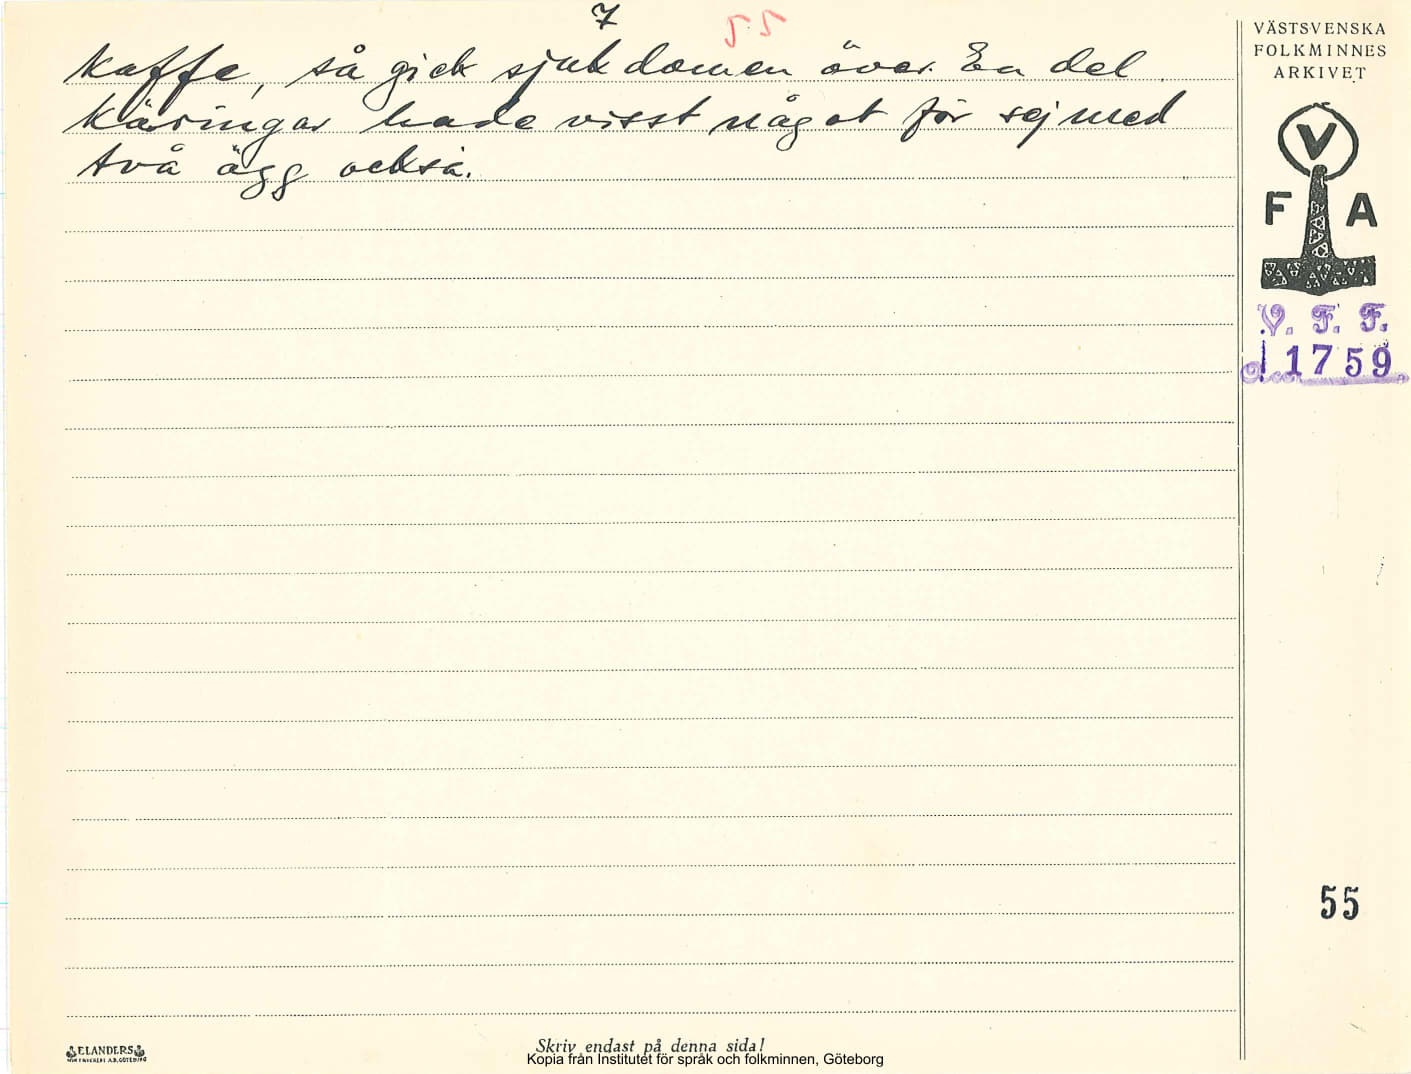 7
55
kaffe, så gick sjukdomen över. En del
käringar hade visst något för sej med
två ägg också.
VÄSTSVENSKA
FOLKMINNES
ARKIVET
V
F A
V. F. F.
1759
55
ELANDERS
Skriv endast på denna sida!
Kopia från Institutet för språk och folkminnen, Göteborg